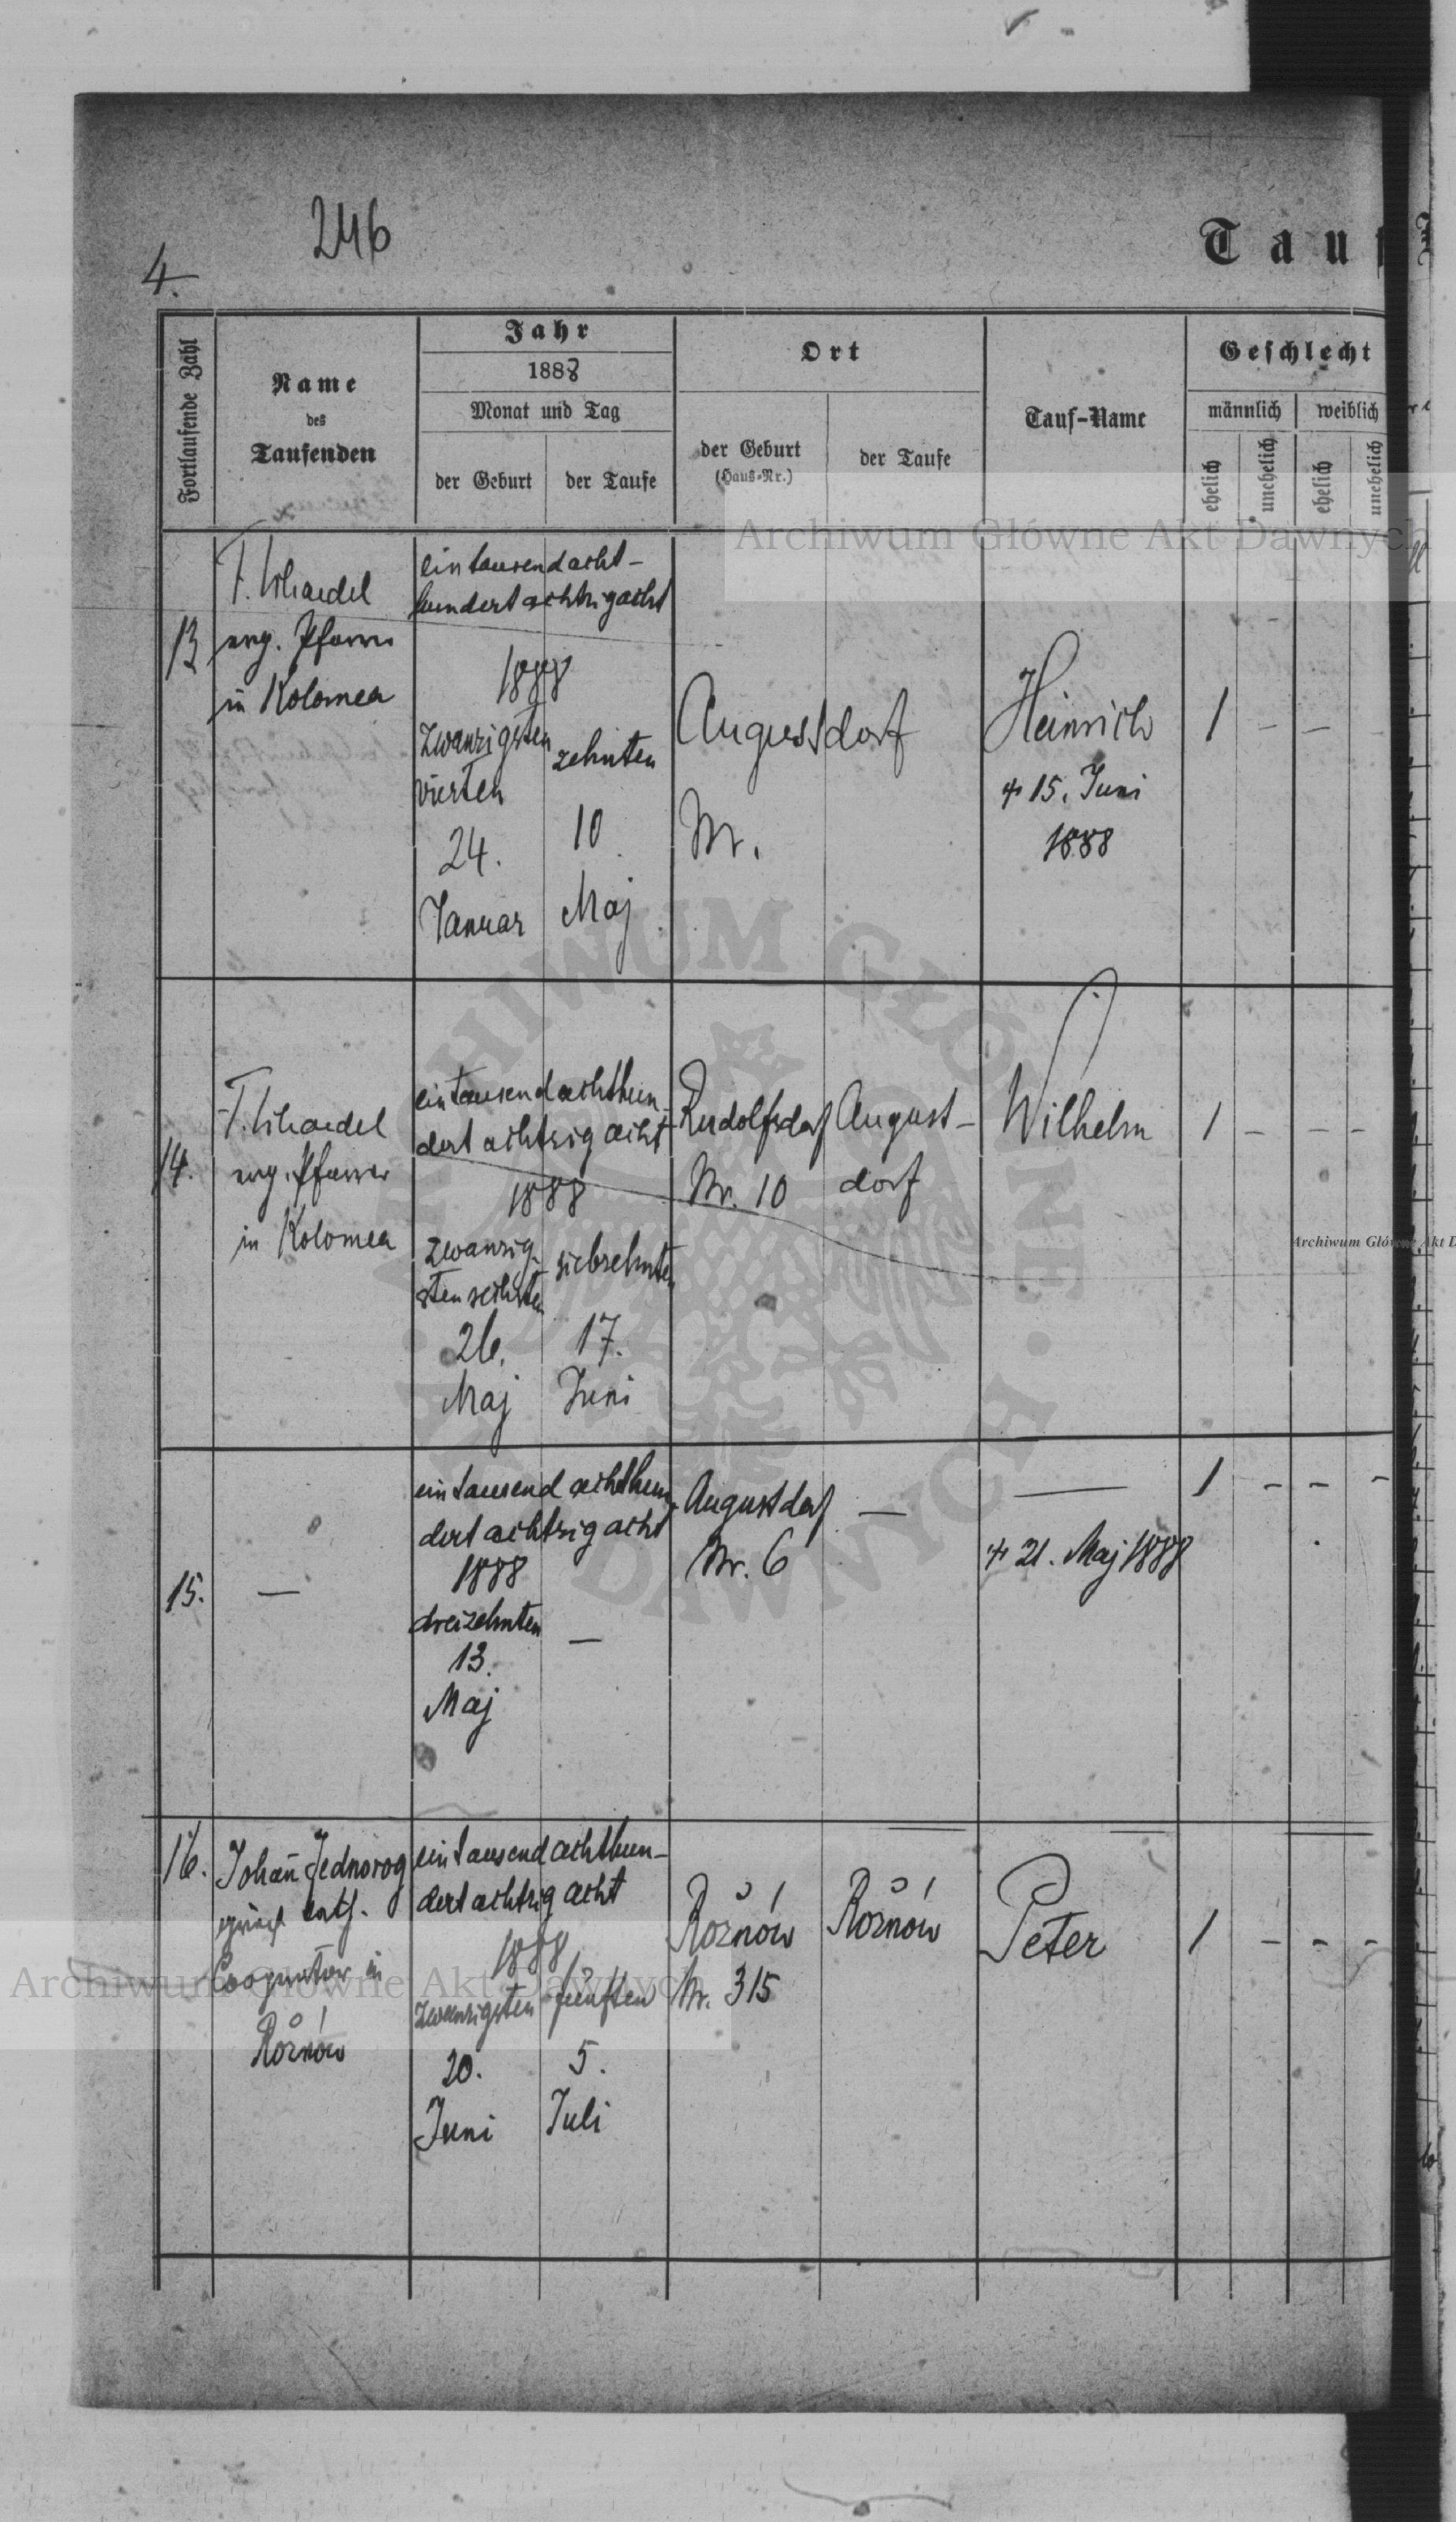 246
4.
Tauf
Fortlaufende Zahl
Name
des
Taufenden
Jahr
1888
Monat und Tag
der Geburt
der Taufe
Ort
der Geburt
(Haus-Nr.)
der Taufe
Tauf-Name
Geschlecht
männlich
weiblich
ehelich
unehelich
ehelich
unehelich
13
evg. Pfarrer
in Kolomea
eintausendacht-
hundertachtzigacht
1888
zwanzigsten
vierten
24.
Januar
zehnten
10
Maj
Augustdorf
Nr.
Heinrich
+ 15. Juni
1888
1 - -
14.
evg. Pfarrer
in Kolomea
eintausendachthun-
dertachtzigacht
1888
zwanzig-
stensechsten
26.
Maj
siebzehnten
17.
Juni
Rudolfsdorf
Nr. 10
August-
dorf
Wilhelm
1 - - -
15.
—
eintausendachthun-
dertachtzigacht
1888
dreizehnten
13.
Maj
—
Augustdorf
Nr. 6
—
—
+ 21. Maj 1888
1 - - -
16.
Johañ Jednorog
griech kath.
Cooperator in
Rożnów
eintausendachthun-
dertachtzigacht
1888
zwanzigsten
20.
Juni
fünften
5.
Juli
Rożnów
Nr. 315
Rożnów
Peter
1 - - -
Archiwum Główne Akt Dawnych
Archiwum Główne Akt D
Archiwum Główne Akt Dawnych
ARCHIWUM GŁÓWNE AKT DAWNYCH